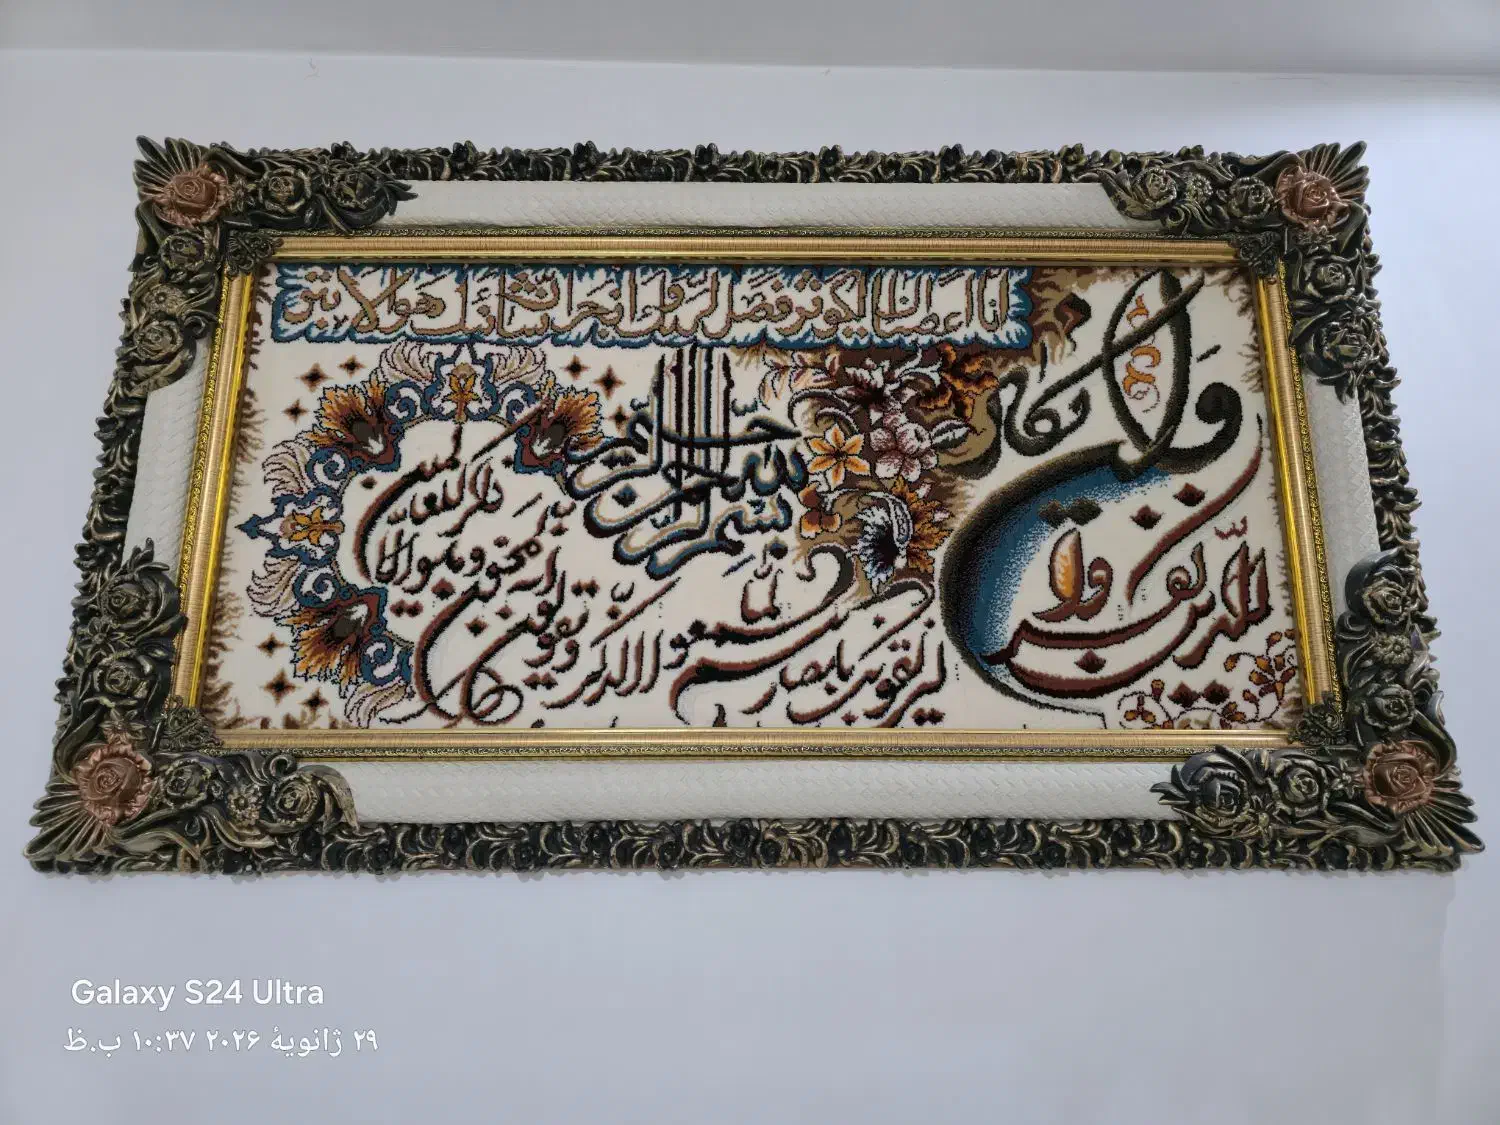 انا اعطیناک الکوثر فصل لربک وانحر ان شانئک هو الابتر
بسم الله الرحمن الرحیم
وان یکاد
الذین کفروا
لیزلقونک بابصارهم
لما سمعوا الذکر
ویقولون انه لمجنون
وما هو الا ذکر للعالمین
Galaxy S24 Ultra
۲۹ ژانویهٔ ۲۰۲۶ ۱۰:۳۷ ب.ظ